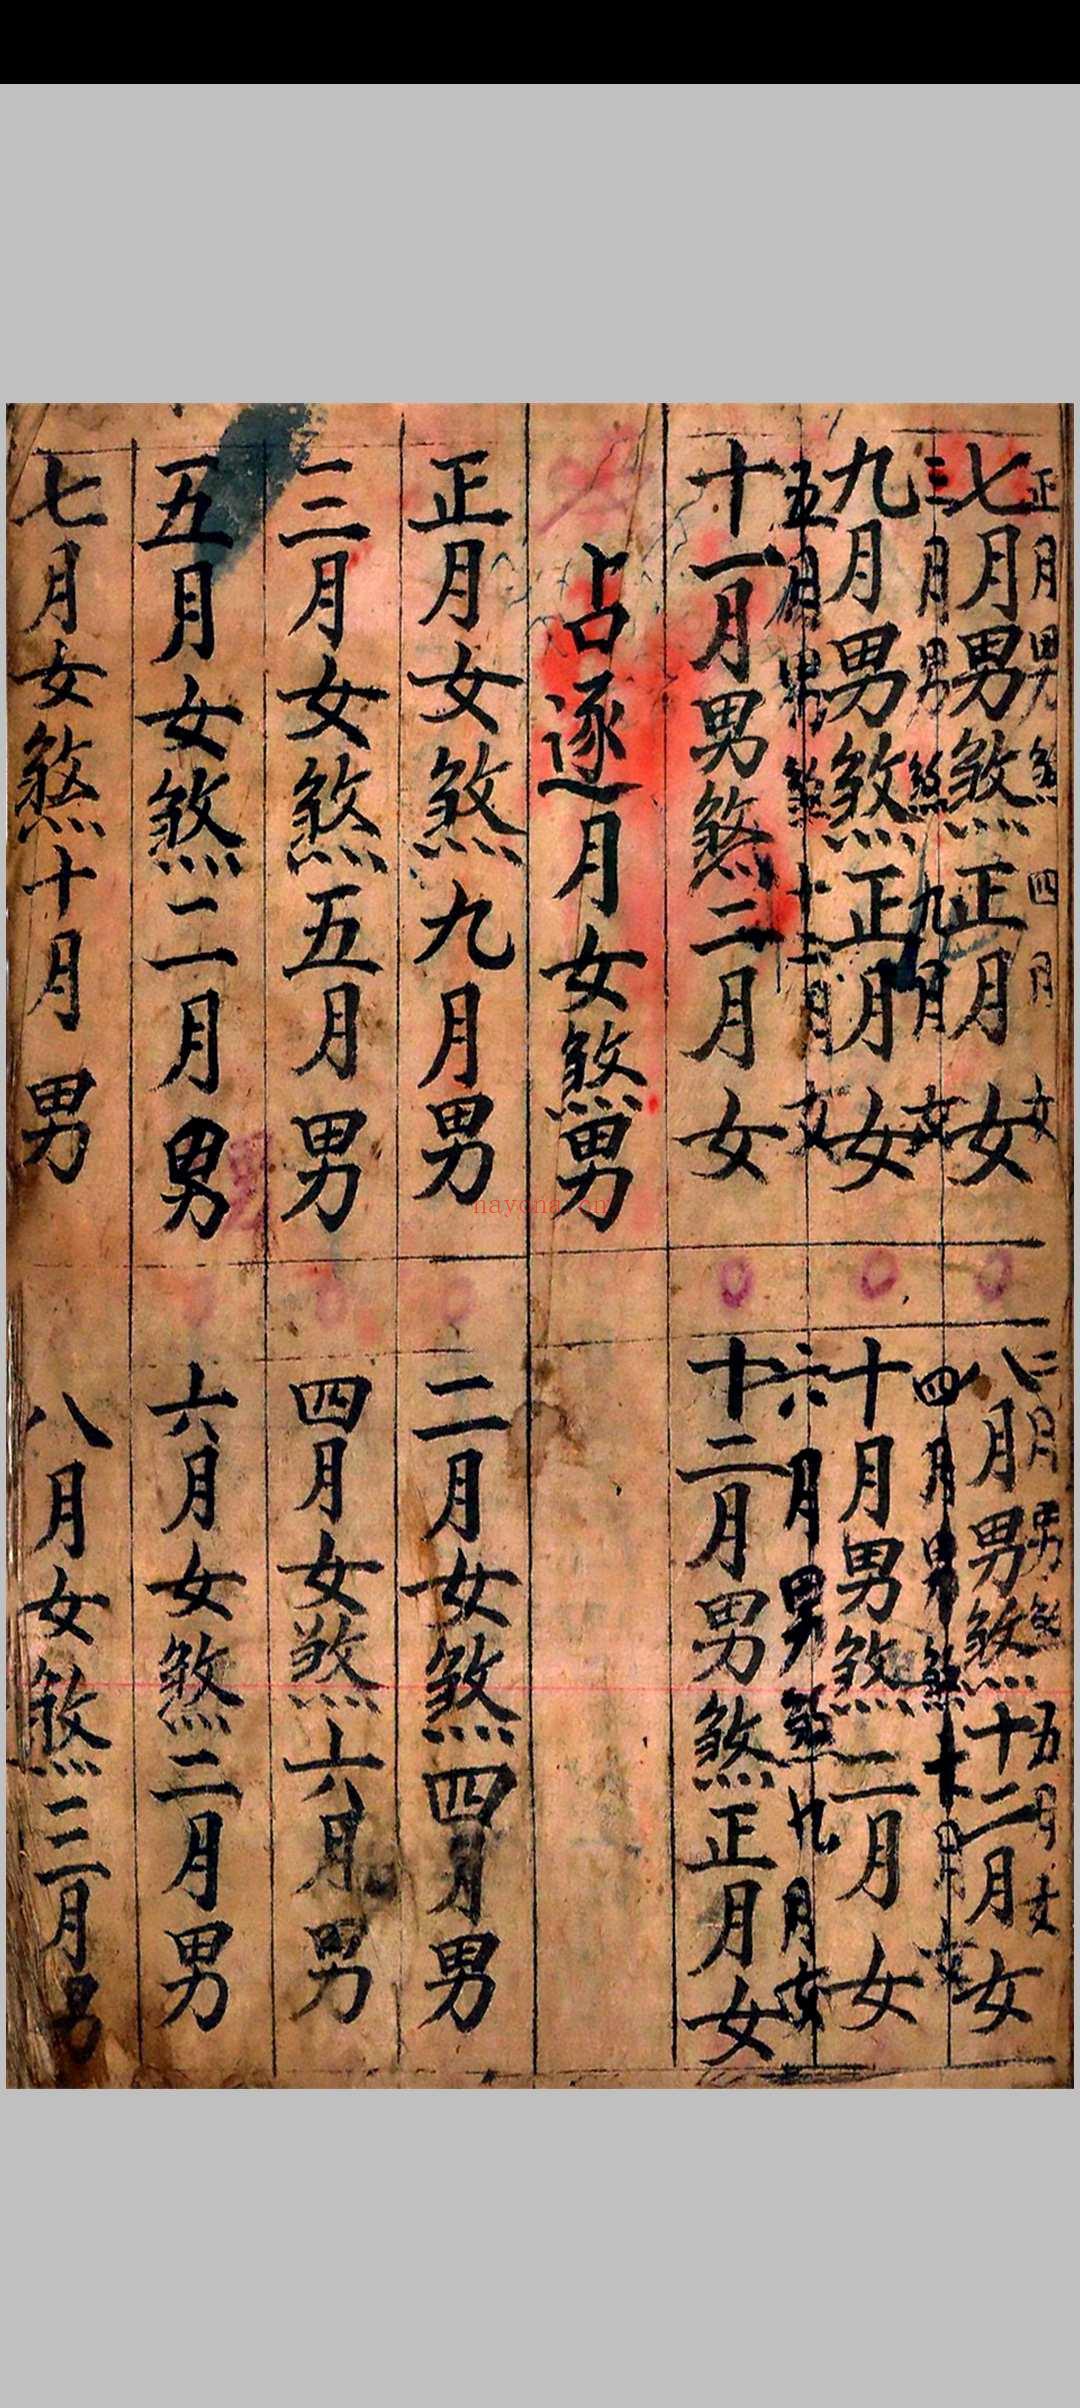 正月男煞四月女
二月男煞五月女
七月男煞正月女
八月男煞十二月女
三月男煞九月女
四月男煞十月女
九月男煞正月女
十月男煞二月女
五月男煞十二月女
六月男煞九月女
十一月男煞二月女
十二月男煞正月女
占逐月女煞男
正月女煞九月男
二月女煞四月男
三月女煞五月男
四月女煞六月男
五月女煞二月男
六月女煞二月男
七月女煞十月男
八月女煞三月男